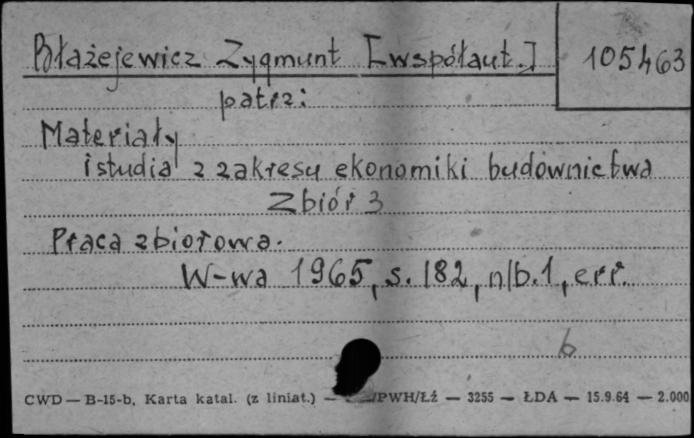 Błażejewicz Zygmunt [współaut.]
105463
patrz:
Materiały
i studia z zakresu ekonomiki budownictwa
Zbiór 3
Praca zbiorowa.
W-wa 1965, s. 182, nlb. 1, err.
b
CWD — B-15-b, Karta katal. (z liniat.) — /PWH/Łź — 3255 — ŁDA — 15.9.64 — 2.000